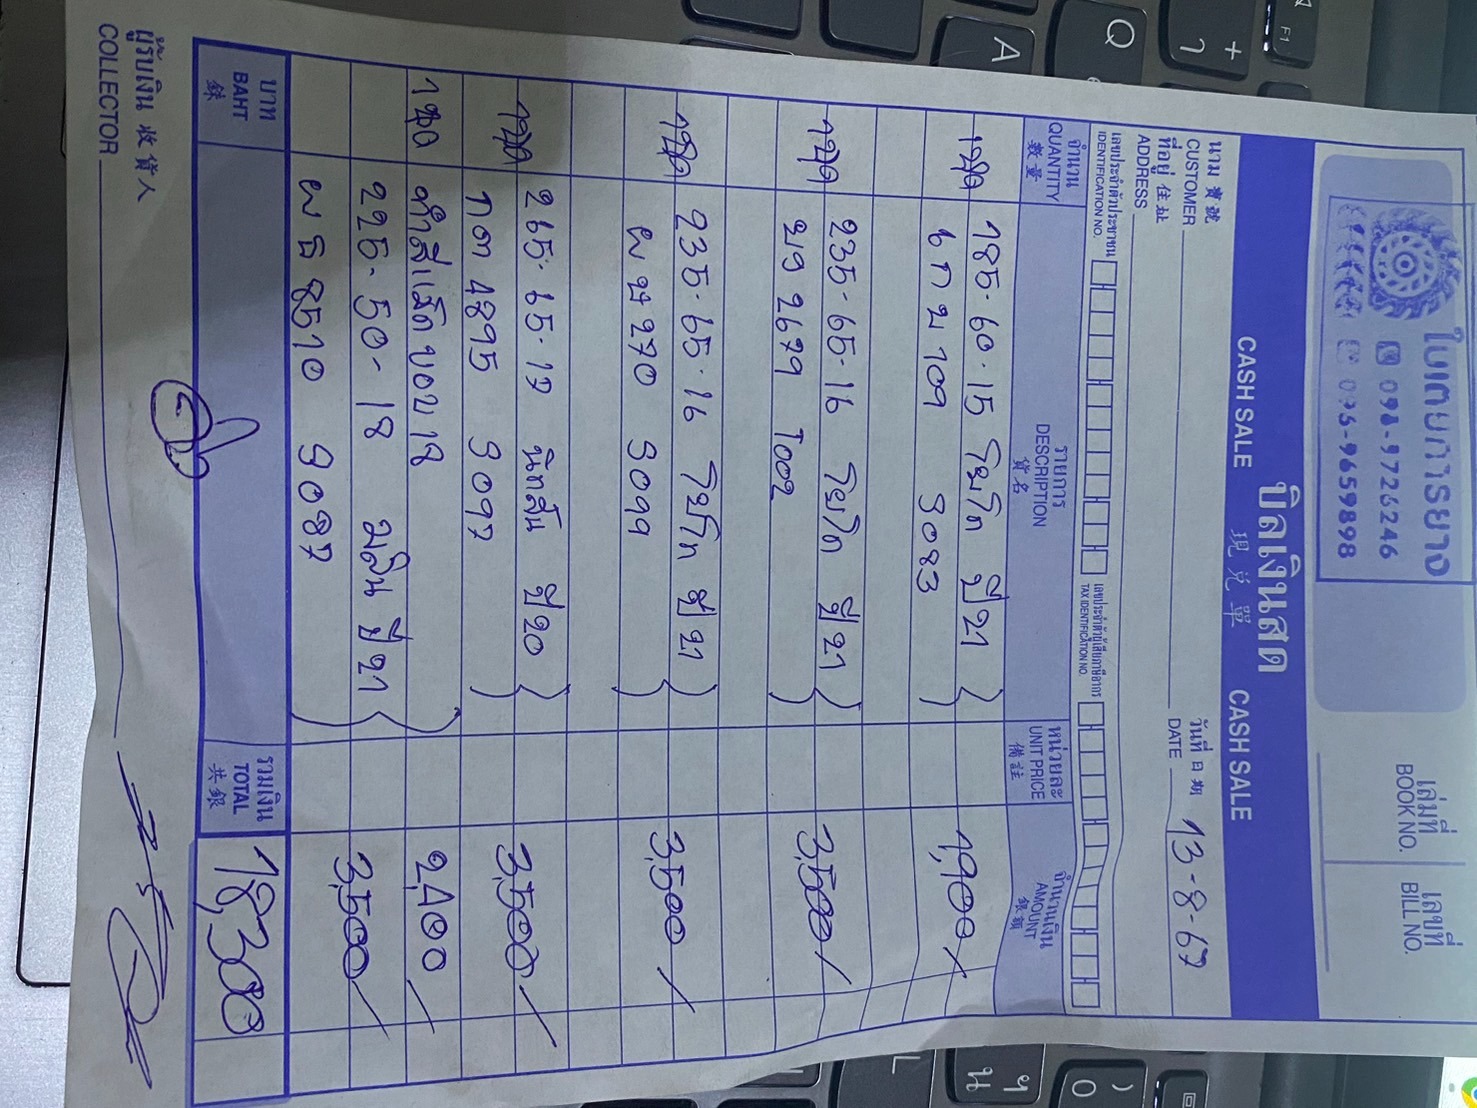 ใบเตยการยาง
098-9726246
096-9659898
เล่มที่ BOOK NO.
เลขที่ BILL NO.
บิลเงินสด
CASH SALE 現兌單 CASH SALE
นาม 寶號 CUSTOMER
วันที่ 日期 DATE 13-8-67
ที่อยู่ 住址 ADDRESS
เลขประจำตัวประชาชน IDENTIFICATION NO.
เลขประจำตัวผู้เสียภาษีอากร TAX IDENTIFICATION NO.
จำนวน QUANTITY 數量
รายการ DESCRIPTION 貨名
หน่วยละ UNIT PRICE 備註
จำนวนเงิน AMOUNT 銀額
1ชุด 185-60-15 โยโก ปี21 1,900
109 3083
1ชุด 235-65-16 โยโก ปี21 3,500
2679 T002
1ชุด 235-65-16 โยโก ปี21 3,500
270 3099
1ชุด 265-65-17 ปี20 3,500
4895 3097
ทำสีแม็ก ขอบ 18 2,400
225-50-18 ปี21 3,500
ผธ 8510 3087
บาท BAHT 銖
รวมเงิน TOTAL 共銀 18,300
ผู้รับเงิน 收貨人
COLLECTOR